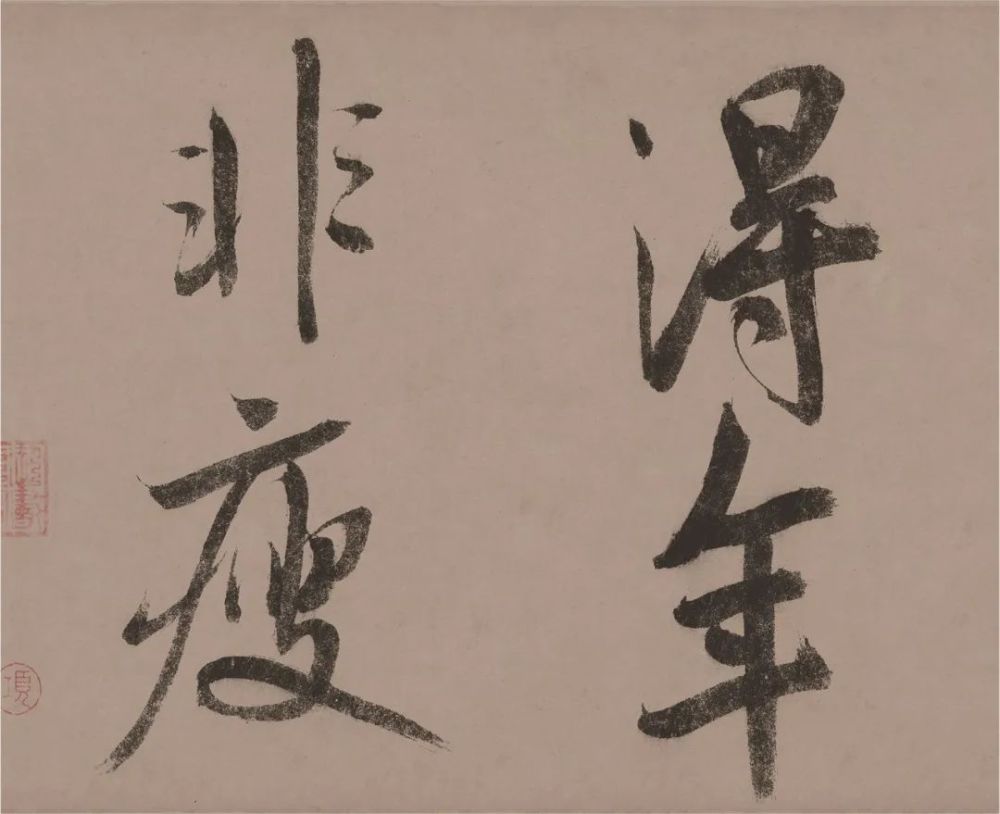 得年
非瘦
項